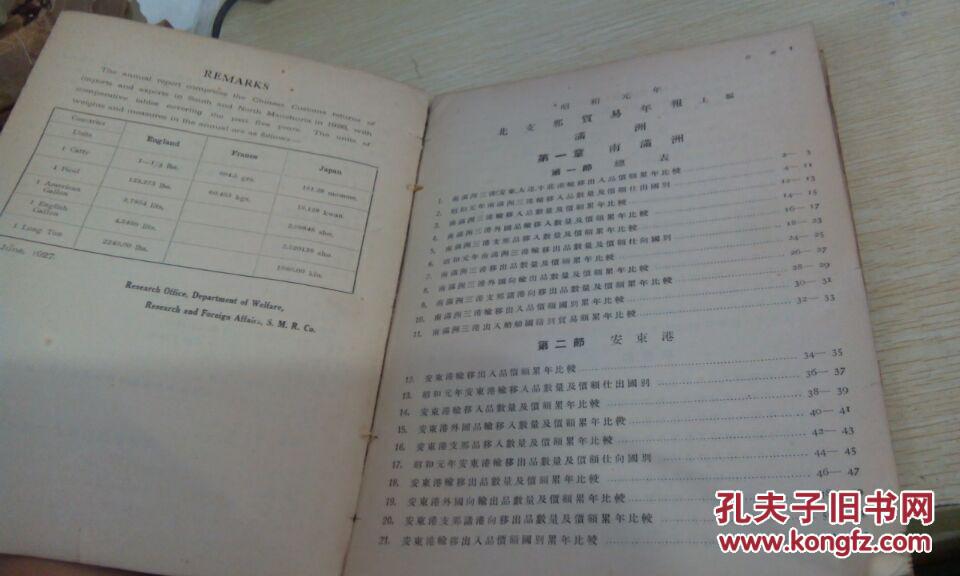 REMARKS
The annual report comprise the Chinese Customs returns of
imports and exports in South and North Manchuria in 1926, with
comparative tables covering the past five years. The units of
weights and measures in the annual are as follows:—
Countries
Units
England
France
Japan
1 Catty
1—1/3 lbs.
grs.
momme.
1 Picul
60.453 kgs.
kwan.
1 American
Gallon
sho.
1 English
Gallon
sho.
1 Long Ton
2240.00 lbs.
June, 1927.
Research Office, Department of Welfare,
Research and Foreign Affairs, S. M. R. Co.
昭和元年
北支那貿易年報 上編
滿洲
第一章 南滿洲
第一節 總表
1. 南滿洲三港(安東、大連、牛莊)港輸移出入品價額累年比較 2— 3
2. 昭和元年南滿洲三港輸移入品數量及價額仕出國別 4— 11
3. 南滿洲三港輸移入品數量及價額累年比較
4. 南滿洲三港外國品輸移入數量及價額累年比較 14— 15
5. 南滿洲三港支那品移入數量及價額累年比較 16— 17
6. 昭和元年南滿洲三港輸移出品數量及價額仕向國別 18— 23
7. 南滿洲三港輸移出品數量及價額累年比較 24— 25
8. 南滿洲三港外國向輸出品數量及價額累年比較 26— 27
9. 南滿洲三港支那諸港向移出品數量及價額累年比較 28— 29
10. 南滿洲三港輸移出入品價額國別累年比較 30— 31
11. 南滿洲三港出入船舶國籍別貿易額累年比較 32— 33
第二節 安東港
12. 安東港輸移出入品價額累年比較 34— 35
13. 昭和元年安東港輸移入品數量及價額仕出國別 36— 37
14. 安東港輸移入品數量及價額累年比較 38— 39
15. 安東港外國品輸移入數量及價額累年比較 40— 41
16. 安東港支那品移入數量及價額累年比較 42— 43
17. 昭和元年安東港輸移出品數量及價額仕向國別 44— 45
18. 安東港輸移出品數量及價額累年比較 46— 47
19. 安東港外國向輸出品數量及價額累年比較
20. 安東港支那諸港向移出品數量及價額累年比較
21. 安東港輸移出入品價額國別累年比較
孔夫子旧书网
www.kongfz.com